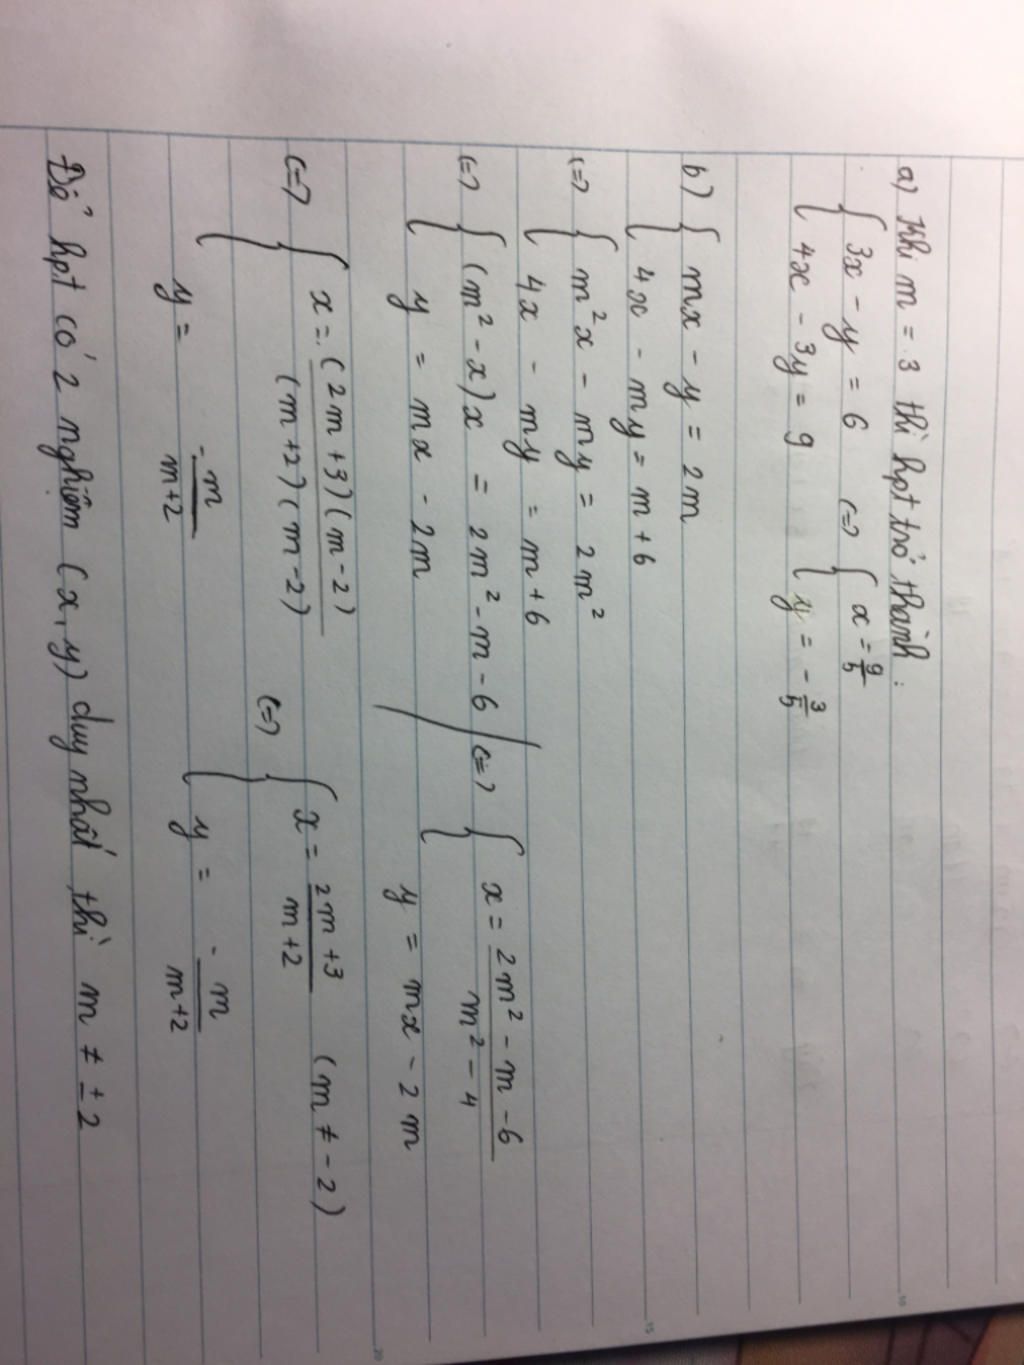 a) Khi m = 3 thì hpt trở thành :
{ 3x - y = 6 (=) { x = 9/5
{ 4x - 3y = 9 { y = - 3/5
b) { mx - y = 2m
{ 4x - my = m + 6
(=) { m² x - my = 2m²
{ 4x - my = m + 6
(=) { (m² - x) x = 2m² - m - 6 (=) { x = (2m² - m - 6)/(m² - 4)
{ y = mx - 2m { y = mx - 2m
(=) { x = (2m + 3)(m - 2)/(m + 2)(m - 2) (=) { x = (2m + 3)/(m + 2) (m ≠ - 2)
{ y = - m/(m+2) { y = - m/(m+2)
Để hpt có 2 nghiệm (x, y) duy nhất thì m ≠ ± 2
10
15
20